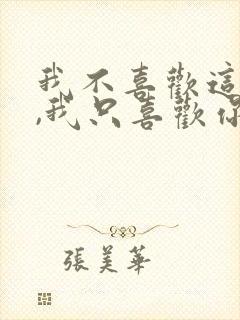 我不喜歡這
,我只喜歡你
張美華